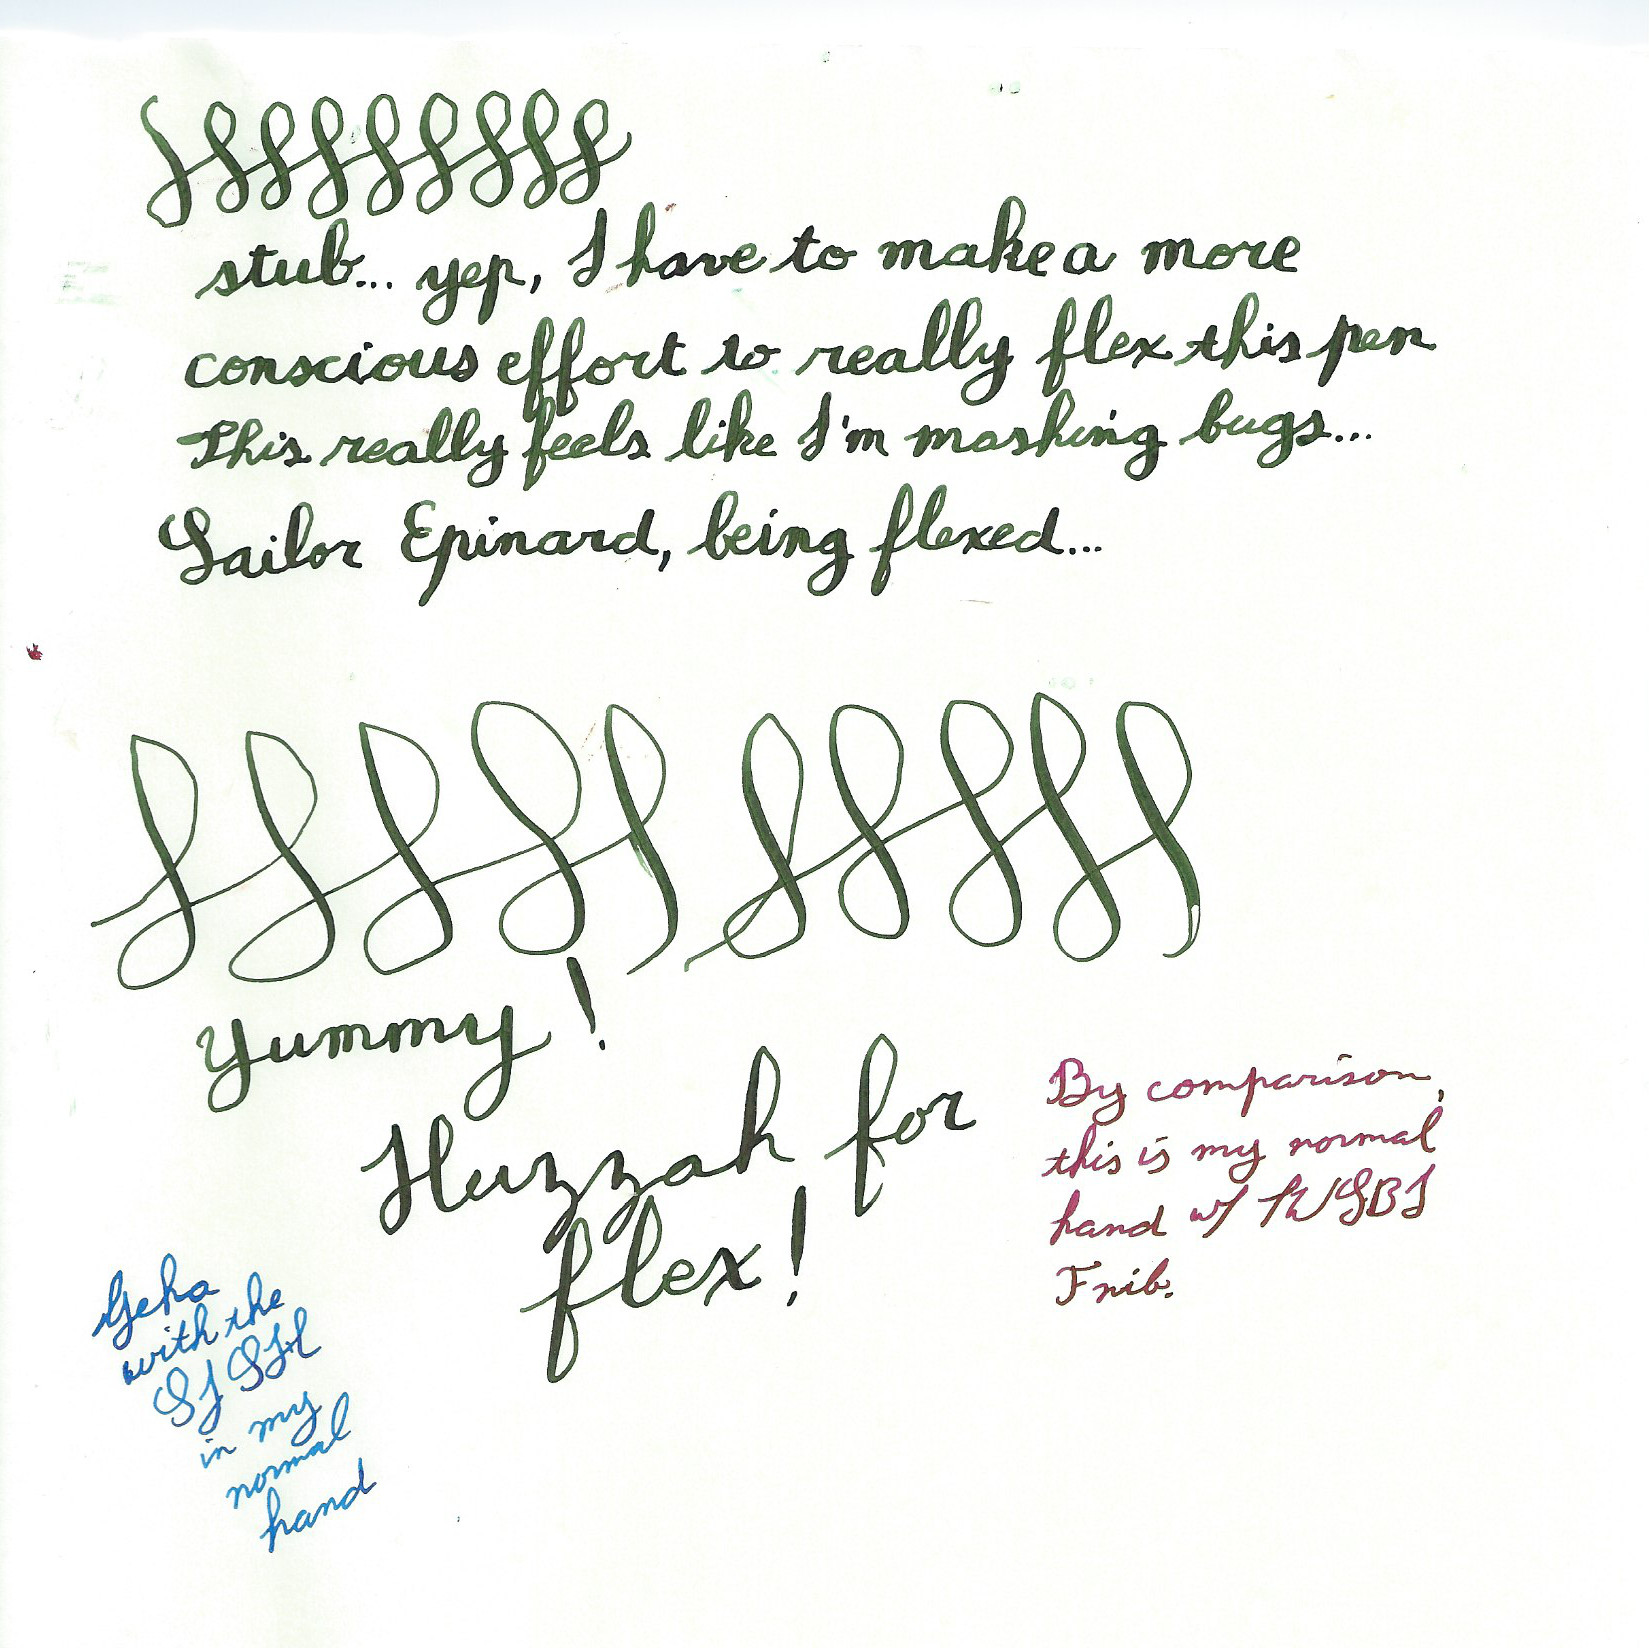 stub... yep, I have to make a more
conscious effort to really flex this pen
This really feels like I'm mashing bugs...
Sailor Epinard, being flexed...
Yummy!
Huzzah for
flex!
By comparison,
this is my normal
hand w/
F nib.
Geha
with the
in my
normal
hand